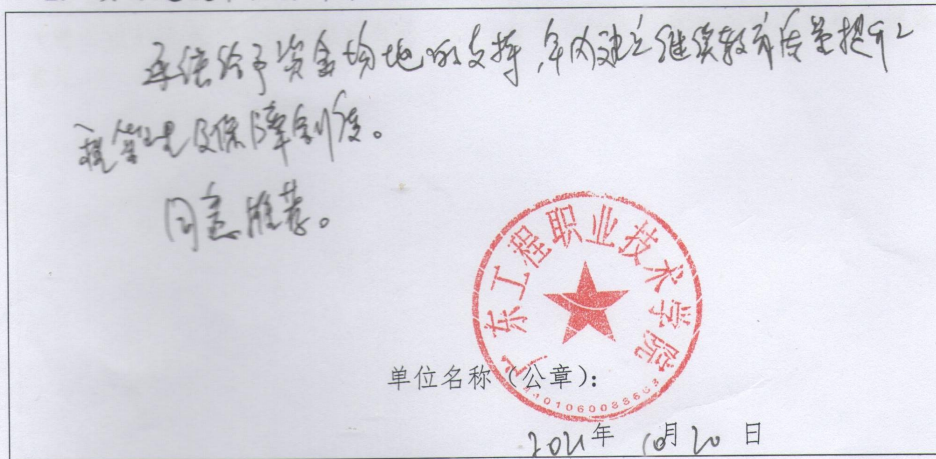 承诺给予资金场地的支持,年内建立继续教育质量提升工
程管理及保障制度。
同意推荐。
广东工程职业技术学院
单位名称(公章):
2021年 10月20日